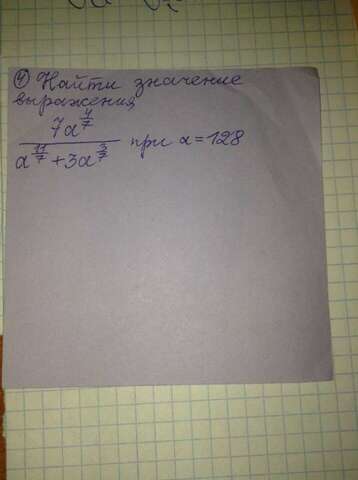 ④ Найти значение
выражения
7a^{4/7} / (a^{11/7} + 3a^{3/7}) при a = 128